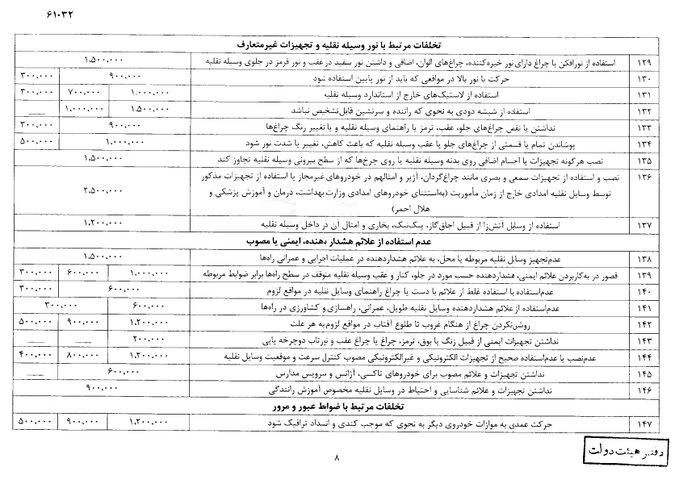 ۶۱۰۳۲
تخلفات مرتبط با نور وسیله نقلیه و تجهیزات غیرمتعارف
۱۲۹ استفاده از نورافکن یا چراغ دارای نور خیره‌کننده، چراغ‌های الوان، اضافی و داشتن نور سفید در عقب و نور قرمز در جلوی وسیله نقلیه ۱،۵۰۰،۰۰۰
۱۳۰ حرکت با نور بالا در مواقعی که باید از نور پایین استفاده شود ۹۰۰،۰۰۰ ۳۰۰،۰۰۰
۱۳۱ استفاده از لاستیک‌های خارج از استاندارد وسیله نقلیه ۱،۰۰۰،۰۰۰ ۷۰۰،۰۰۰ ۳۰۰،۰۰۰
۱۳۲ استفاده از شیشه دودی به نحوی که راننده و سرنشین قابل‌تشخیص نباشد ۱،۵۰۰،۰۰۰ ۱،۰۰۰،۰۰۰ ____
۱۳۳ نداشتن یا نقص چراغ‌های جلو، عقب، ترمز یا راهنمای وسیله نقلیه و یا تغییر رنگ چراغ‌ها ۹۰۰،۰۰۰ ۳۰۰،۰۰۰
۱۳۴ پوشاندن تمام یا قسمتی از چراغ‌های جلو یا عقب وسیله نقلیه که باعث کاهش، تغییر یا شدت نور شود ۱،۰۰۰،۰۰۰ ۵۰۰،۰۰۰
۱۳۵ نصب هرگونه تجهیزات یا اجسام اضافی روی بدنه وسیله نقلیه یا روی چرخ‌ها که از سطح بیرونی وسیله نقلیه تجاوز کند ۱،۵۰۰،۰۰۰
۱۳۶ نصب و استفاده از تجهیزات سمعی و بصری مانند چراغ‌گردان، آژیر و امثالهم در خودروهای غیرمجاز یا استفاده از تجهیزات مذکور
توسط وسایل نقلیه امدادی خارج از زمان مأموریت (به‌استثنای خودروهای امدادی وزارت بهداشت، درمان و آموزش پزشکی و ۲،۵۰۰،۰۰۰
هلال احمر)
۱۳۷ استفاده از وسایل آتش‌زا از قبیل اجاق‌گاز، پیک‌نیک، بخاری و امثال آن در داخل وسیله نقلیه ۱،۲۰۰،۰۰۰
عدم استفاده از علائم هشداردهنده، ایمنی یا مصوب
۱۳۸ عدم‌تجهیز وسایل نقلیه مربوطه یا محل، به علائم هشداردهنده در عملیات اجرایی و عمرانی راه‌ها ۱،۵۰۰،۰۰۰
۱۳۹ قصور در به‌کاربردن علائم ایمنی، هشداردهنده حسب مورد در جلو، کنار و عقب وسیله نقلیه متوقف در سطح راه‌ها برابر ضوابط مربوطه ۱،۰۰۰،۰۰۰ ۶۰۰،۰۰۰ ۳۰۰،۰۰۰
۱۴۰ عدم‌استفاده یا استفاده غلط از علائم با دست یا چراغ راهنمای وسایل نقلیه در مواقع لزوم ۶۰۰،۰۰۰ ۳۰۰،۰۰۰
۱۴۱ عدم‌استفاده از علائم هشداردهنده وسایل نقلیه طویل، عمرانی، راهسازی و کشاورزی در راه‌ها ۶۰۰،۰۰۰ ۳۰۰،۰۰۰
۱۴۲ روشن‌نکردن چراغ از هنگام غروب تا طلوع آفتاب در مواقع لزوم به هر علت ۱،۲۰۰،۰۰۰ ۹۰۰،۰۰۰ ۵۰۰،۰۰۰
۱۴۳ نداشتن تجهیزات ایمنی از قبیل زنگ یا بوق، ترمز، چراغ یا چراغ عقب و نورتاب دوچرخه پایی ۲۰۰،۰۰۰ ____
۱۴۴ عدم‌نصب یا عدم‌استفاده صحیح از تجهیزات الکترونیکی و غیرالکترونیکی مصوب کنترل سرعت و موقعیت وسایل نقلیه ۱،۲۰۰،۰۰۰ ۸۰۰،۰۰۰ ۴۰۰،۰۰۰
۱۴۵ نداشتن تجهیزات و علائم مصوب برای خودروهای تاکسی، آژانس و سرویس مدارس ۶۰۰،۰۰۰ ____
۱۴۶ نداشتن تجهیزات و علائم شناسایی و احتیاط در وسایل نقلیه مخصوص آموزش رانندگی ۹۰۰،۰۰۰
تخلفات مرتبط با ضوابط عبور و مرور
۱۴۷ حرکت عمدی به موازات خودروی دیگر به نحوی که موجب کندی و انسداد ترافیک شود ۱،۲۰۰،۰۰۰ ۹۰۰،۰۰۰ ۵۰۰،۰۰۰
۸
دفتر هیئت دولت